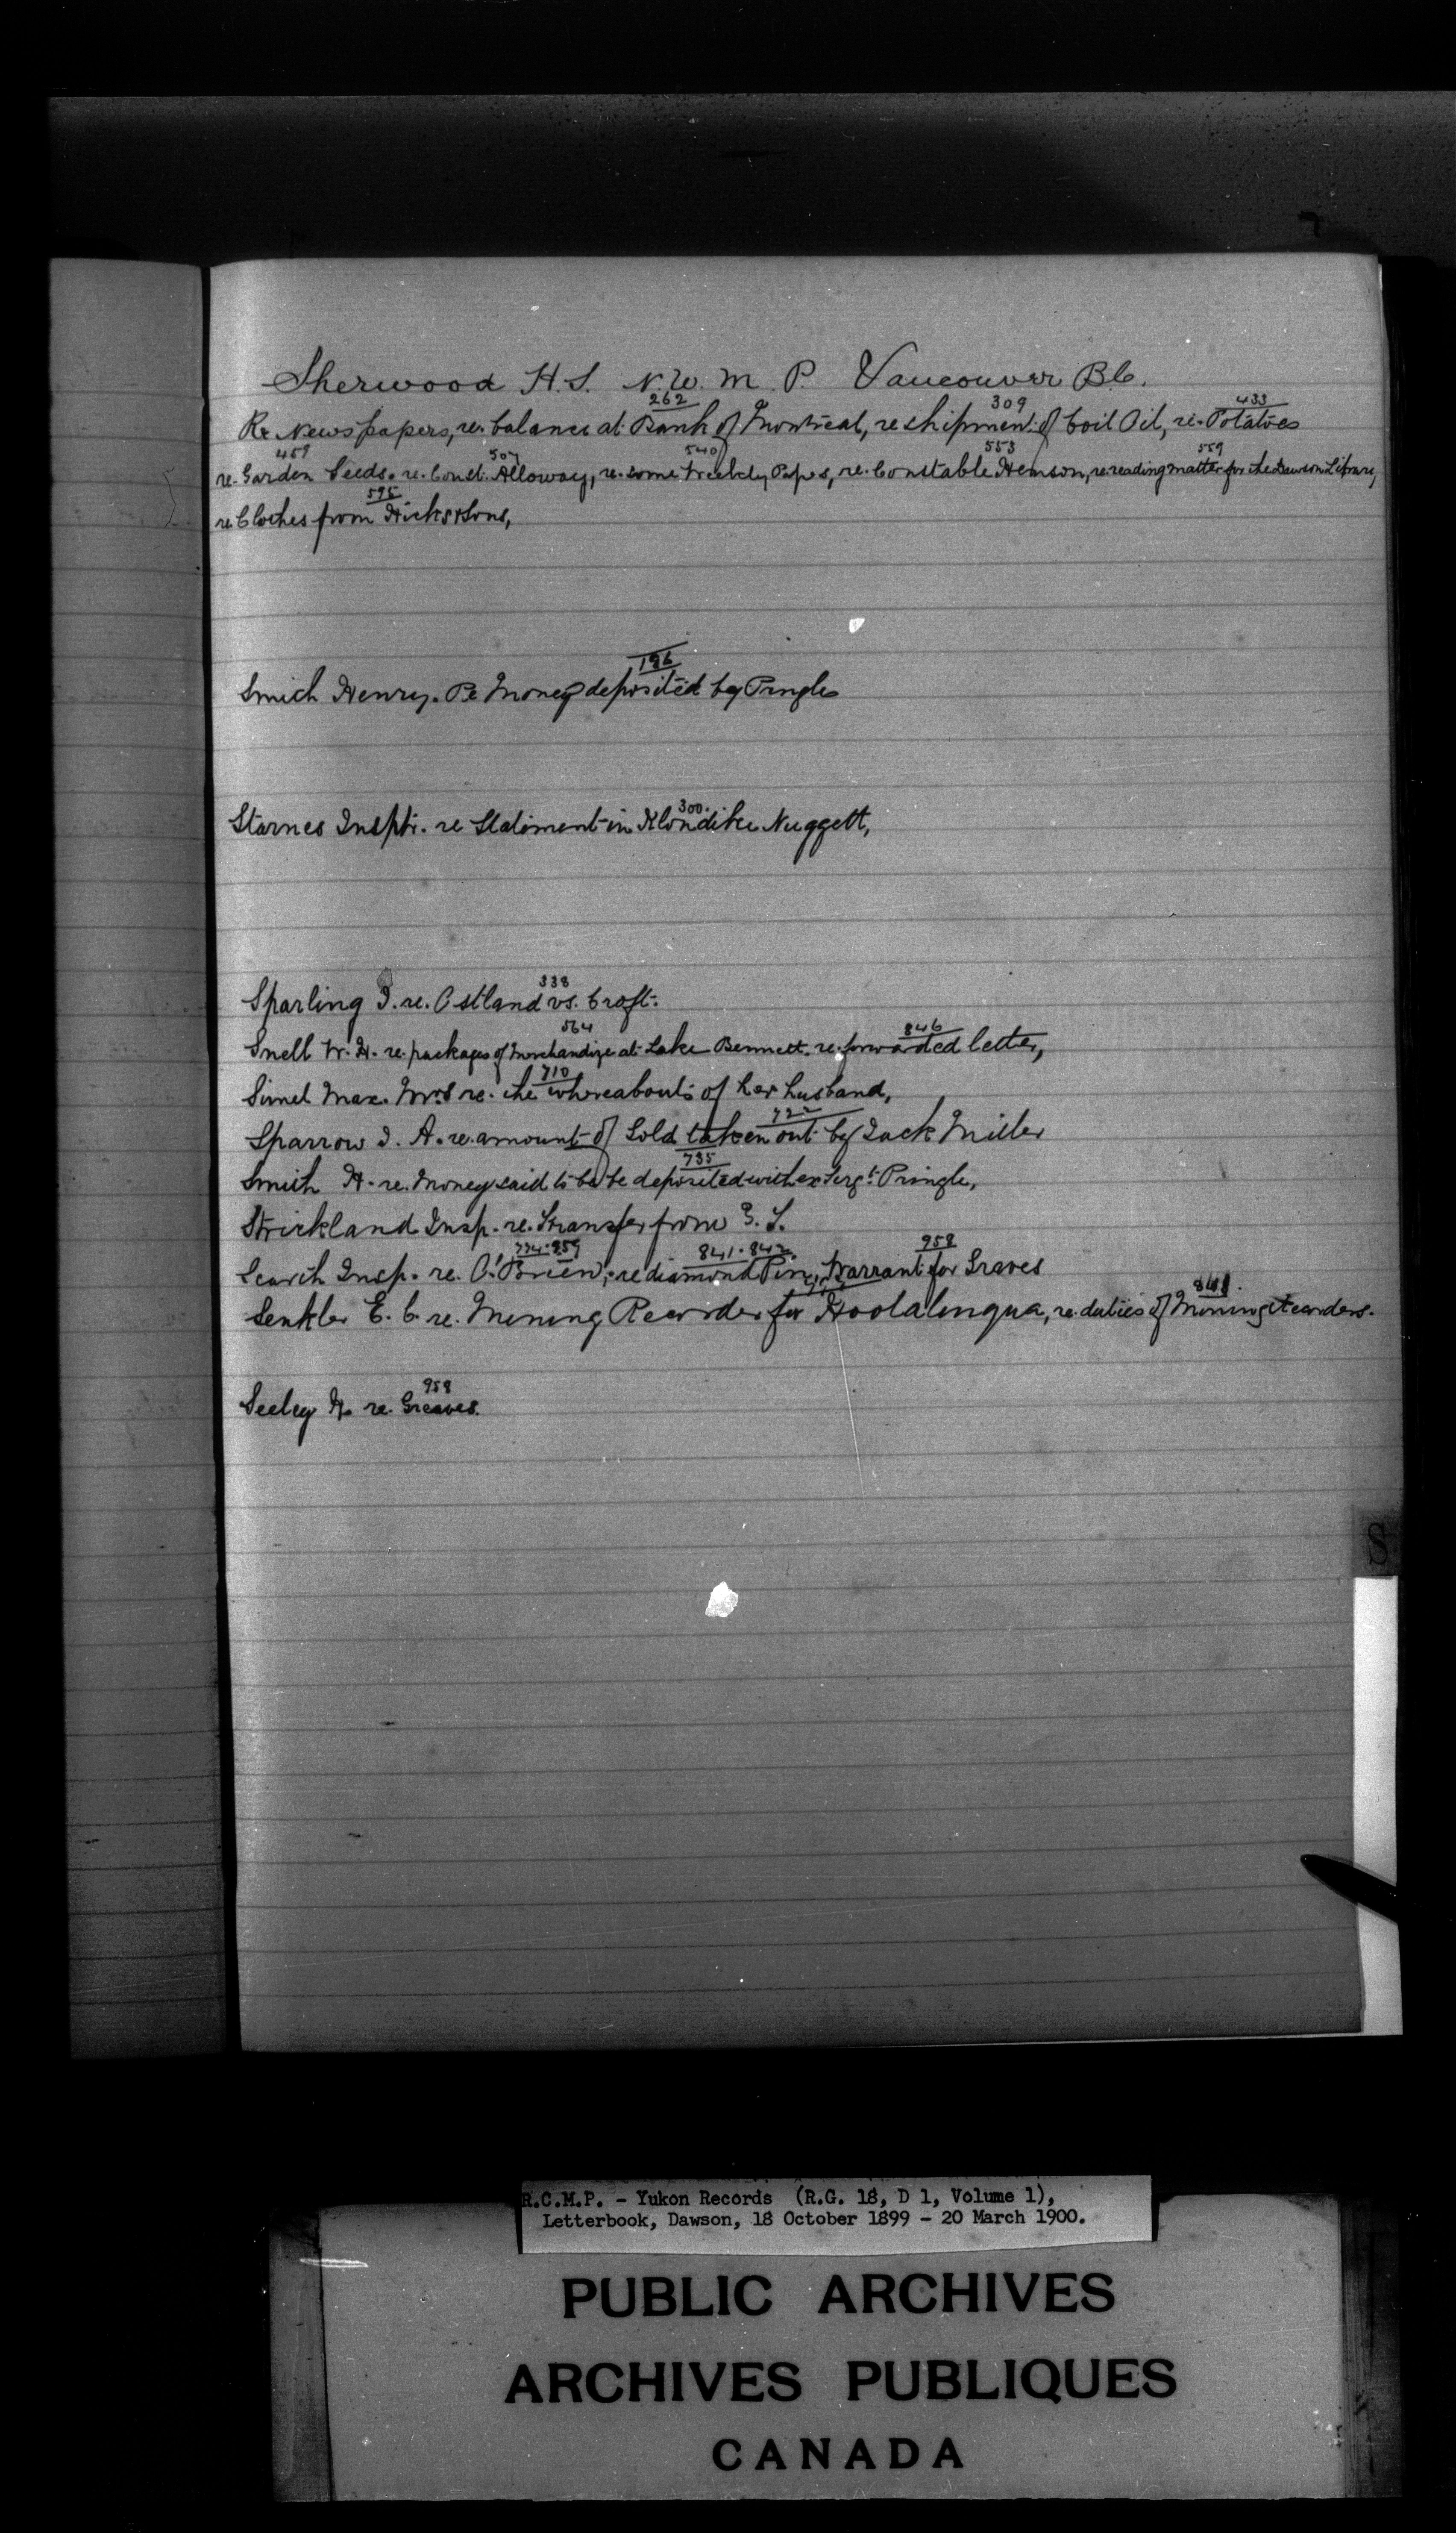 Sherwood H.S. N.W.M.P. Vancouver B.C.
262 309 433
Re Newspapers, re. balance at Bank of Montreal, re shipment of Coil Oil, re. Potatoes
459 507 540 553 559
re. Garden Seeds. re. Const. Alloway, re. some Weekly Papers, re. Constable Hemson, re. reading matter for the Dawson Library,
595
re. Clothes from Hicks & Sons,
196
Smith Henry. Re Money deposited by Pringle
300.
Starnes Insptr. re Statement in Klondike Nuggett,
338
Sparling J. re. Ostland vs. Croft.
564 846
Snell W. H. re. packages of Merchandize at Lake Bennett. re. forwarded letter,
710
Simel Max. Mrs re. the whereabouts of her husband,
722
Sparrow J. A. re. amount of Gold taken out by Jack Miller
735
Smith H. re. Money said to be be deposited with ex Sergt. Pringle,
Strickland Insp. re. Transfer from G. T.
774.959 841.842. 958
Scarth Insp. re. O'Brien, re diamond Pin, Warrant for Graves
841.
Senkler E. C. re. Mining Recorder for Hootalinqua, re. duties of Mining Recorders.
958
Seeley H. re. Greaves.
S
R.C.M.P. - Yukon Records (R.G. 18, D 1, Volume 1),
Letterbook, Dawson, 18 October 1899 - 20 March 1900.
PUBLIC ARCHIVES
ARCHIVES PUBLIQUES
CANADA